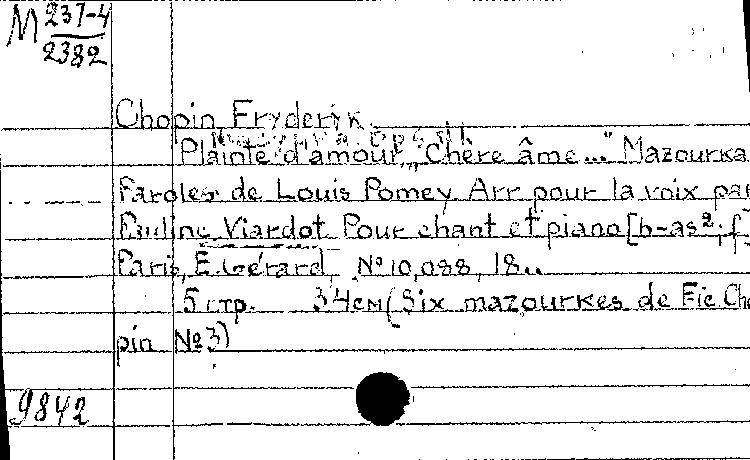 M 237-4
2382
Chopin, Fryderyk.
Plainte d'amour, "Chère âme..." Mazourka
Paroles de Louis Pomey. Arr pour la voix par
Pauline Viardot. Pour chant et piano [b-as²; f]
Paris, E. Gérard, № 10,088, 18..
5 стр. 34 см (Six mazourkes de Fie Cho
pin №3)
9842